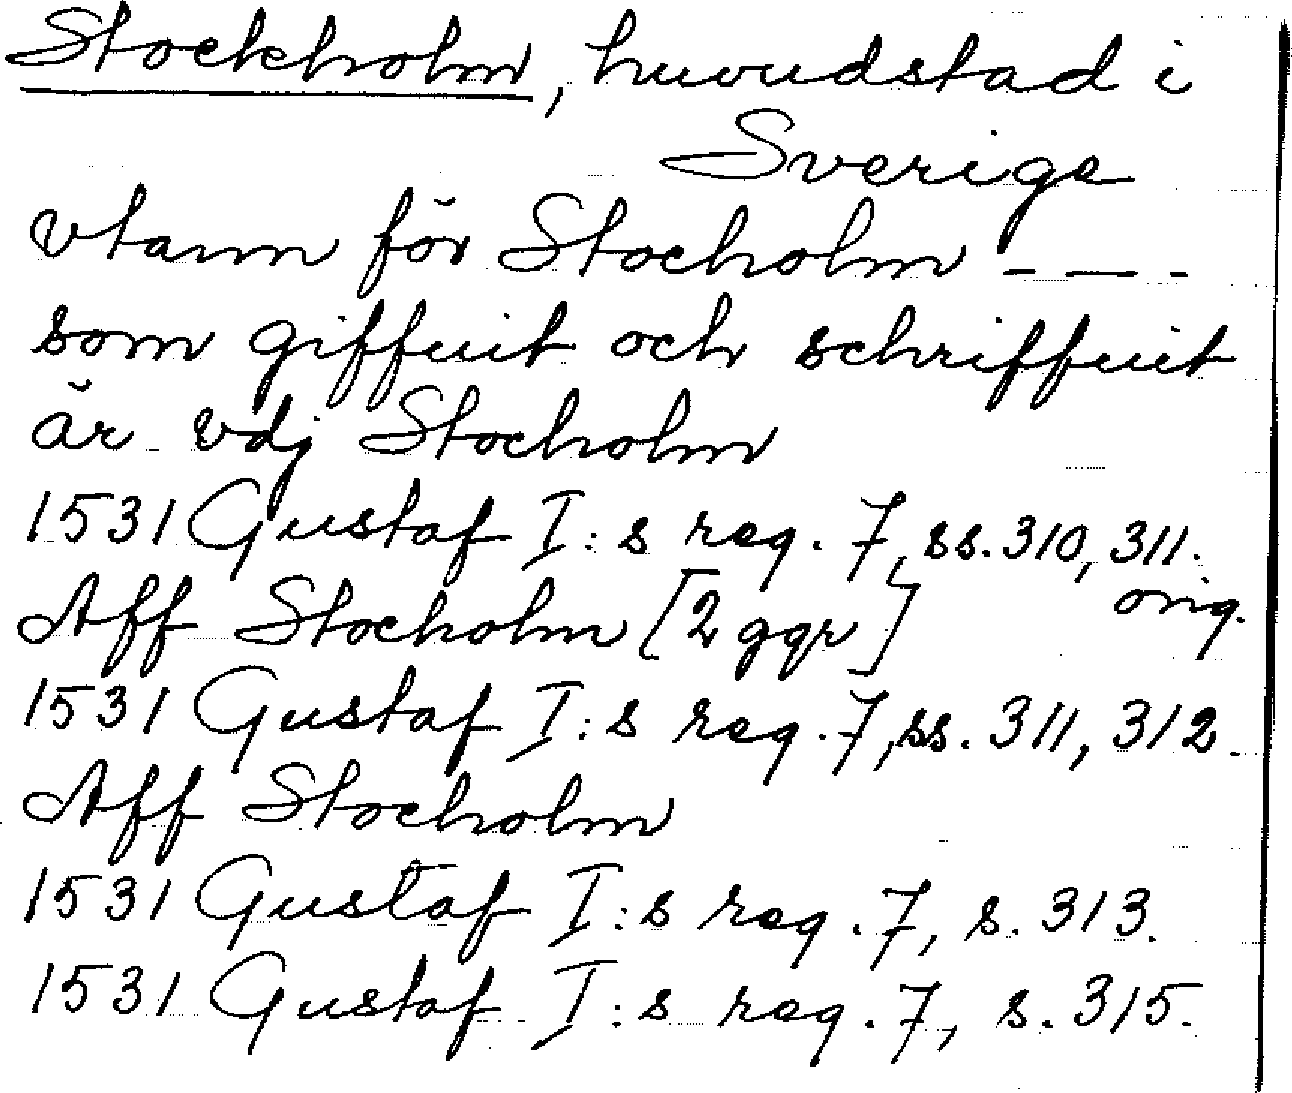 Stockholm, huvudstad i
Sverige
vtann för Stocholm - — -
som giffuit och schriffuit
är vdj Stocholm
1531 Gustaf I:s reg. 7, ss. 310, 311.
orig.
Aff Stocholm [2 ggr]
1531 Gustaf I:s reg. 7, ss. 311, 312.
Aff Stocholm
1531 Gustaf I:s reg. 7, s. 313.
1531 Gustaf I:s reg. 7, s. 315.